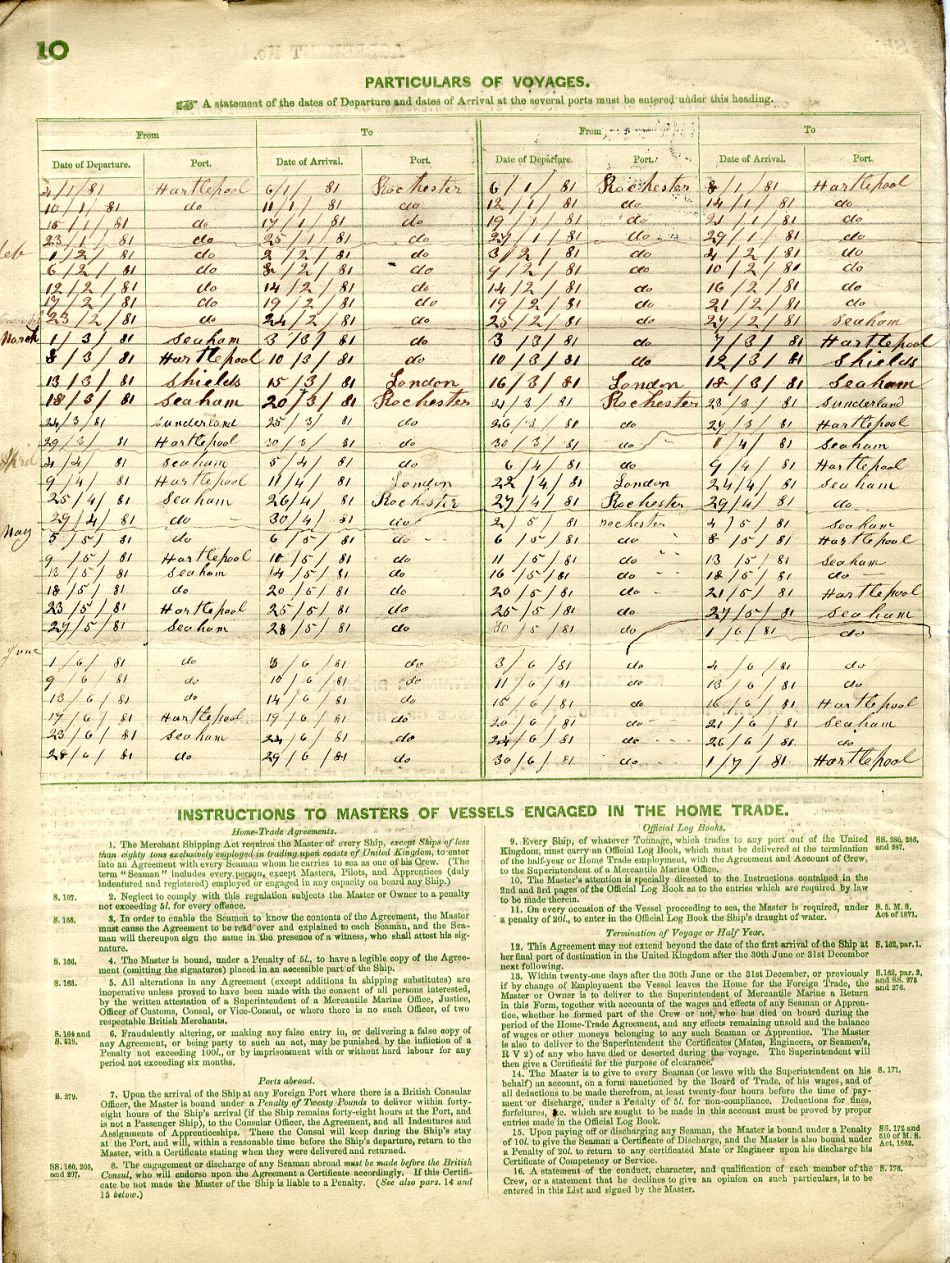 10
PARTICULARS OF VOYAGES.
A statement of the dates of Departure and dates of Arrival at the several ports must be entered under this heading.
From To From To
Date of Departure. Port. Date of Arrival. Port. Date of Departure. Port. Date of Arrival. Port.
4/1/81 Hartlepool 6/1/81 Rochester 6/1/81 Rochester 8/1/81 Hartlepool
10/1/81 do 11/1/81 do 12/1/81 do 14/1/81 do
15/1/81 do 17/1/81 do 19/1/81 do 21/1/81 do
23/1/81 do 25/1/81 do 27/1/81 do 29/1/81 do
1/2/81 do 2/2/81 do 3/2/81 do 4/2/81 do
6/2/81 do 8/2/81 do 9/2/81 do 10/2/81 do
12/2/81 do 14/2/81 do 14/2/81 do 16/2/81 do
17/2/81 do 19/2/81 do 19/2/81 do 21/2/81 do
23/2/81 do 24/2/81 do 25/2/81 do 27/2/81 Seaham
March 1/3/81 Seaham 3/3/81 do 3/3/81 do 7/3/81 Hartlepool
8/3/81 Hartlepool 10/3/81 do 10/3/81 do 12/3/81 Shields
13/3/81 Shields 15/3/81 London 16/3/81 London 18/3/81 Seaham
18/3/81 Seaham 20/3/81 Rochester 21/3/81 Rochester 23/3/81 Sunderland
24/3/81 Sunderland 25/3/81 do 26/3/81 do 27/3/81 Hartlepool
29/3/81 Hartlepool 30/3/81 do 30/3/81 do 1/4/81 Seaham
April 4/4/81 Seaham 5/4/81 do 6/4/81 do 9/4/81 Hartlepool
9/4/81 Hartlepool 11/4/81 London 22/4/81 London 24/4/81 Seaham
25/4/81 Seaham 26/4/81 Rochester 27/4/81 Rochester 29/4/81 do
29/4/81 do 30/4/81 do 2/5/81 rochester 4/5/81 Seaham
May 5/5/81 do 6/5/81 do 6/5/81 do 8/5/81 Hartlepool
9/5/81 Hartlepool 10/5/81 do 11/5/81 do 13/5/81 Seaham
13/5/81 Seaham 14/5/81 do 16/5/81 do 18/5/81 do
18/5/81 do 20/5/81 do 20/5/81 do 21/5/81 Hartlepool
23/5/81 Hartlepool 25/5/81 do 25/5/81 do 27/5/81 Seaham
27/5/81 Seaham 28/5/81 do 30/5/81 do 1/6/81 do
June
1/6/81 do 3/6/81 do 3/6/81 do 4/6/81 do
9/6/81 do 10/6/81 do 11/6/81 do 13/6/81 do
13/6/81 do 14/6/81 do 15/6/81 do 16/6/81 Hartlepool
17/6/81 Hartlepool 19/6/81 do 20/6/81 do 21/6/81 Seaham
23/6/81 Seaham 24/6/81 do 24/6/81 do 26/6/81 do
28/6/81 do 29/6/81 do 30/6/81 do 1/7/81 Hartlepool
INSTRUCTIONS TO MASTERS OF VESSELS ENGAGED IN THE HOME TRADE.
Home-Trade Agreements.
1. The Merchant Shipping Act requires the Master of every Ship, except Ships of less
than eighty tons exclusively employed in trading upon coasts of United Kingdom, to enter
into an Agreement with every Seaman whom he carries to sea as one of his Crew. (The
term "Seaman" includes every person, except Masters, Pilots, and Apprentices (duly
indentured and registered) employed or engaged in any capacity on board any Ship.)
S. 157. 2. Neglect to comply with this regulation subjects the Master or Owner to a penalty
not exceeding 5l. for every offence.
S. 155. 3. In order to enable the Seamen to know the contents of the Agreement, the Master
must cause the Agreement to be read over and explained to each Seaman, and the Sea-
man will thereupon sign the same in the presence of a witness, who shall attest his sig-
nature.
S. 166. 4. The Master is bound, under a Penalty of 5l., to have a legible copy of the Agree-
ment (omitting the signatures) placed in an accessible part of the Ship.
S. 163. 5. All alterations in any Agreement (except additions in shipping substitutes) are
inoperative unless proved to have been made with the consent of all persons interested,
by the written attestation of a Superintendent of a Mercantile Marine Office, Justice,
Officer of Customs, Consul, or Vice-Consul, or where there is no such Officer, of two
respectable British Merchants.
S. 164 and 6. Fraudulently altering, or making any false entry in, or delivering a false copy of
S. 518. any Agreement, or being party to such an act, may be punished by the infliction of a
Penalty not exceeding 100l., or by imprisonment with or without hard labour for any
period not exceeding six months.
Ports abroad.
S. 279. 7. Upon the arrival of the Ship at any Foreign Port where there is a British Consular
Officer, the Master is bound under a Penalty of Twenty Pounds to deliver within forty-
eight hours of the Ship's arrival (if the Ship remains forty-eight hours at the Port, and
is not a Passenger Ship), to the Consular Officer, the Agreement, and all Indentures and
Assignments of Apprenticeships. These the Consul will keep during the Ship's stay
at the Port, and will, within a reasonable time before the Ship's departure, return to the
Master, with a Certificate stating when they were delivered and returned.
SS. 160, 205, 8. The engagement or discharge of any Seaman abroad must be made before the British
and 207. Consul, who will endorse upon the Agreement a Certificate accordingly. If this Certifi-
cate be not made the Master of the Ship is liable to a Penalty. (See also pars. 14 and
15 below.)
Official Log Books.
9. Every Ship, of whatever Tonnage, which trades to any port out of the United SS. 280, 286,
Kingdom, must carry an Official Log Book, which must be delivered at the termination and 287.
of the half-year or Home Trade employment, with the Agreement and Account of Crew,
to the Superintendent of a Mercantile Marine Office.
10. The Master's attention is specially directed to the Instructions contained in the
2nd and 3rd pages of the Official Log Book as to the entries which are required by law
to be made therein.
11. On every occasion of the Vessel proceeding to sea, the Master is required, under S. 5. M. S.
a penalty of 20l., to enter in the Official Log Book the Ship's draught of water. Act of 1871.
Termination of Voyage or Half Year.
12. This Agreement may not extend beyond the date of the first arrival of the Ship at S. 162, par. 1.
her final port of destination in the United Kingdom after the 30th June or 31st December
next following.
13. Within twenty-one days after the 30th June or the 31st December, or previously S. 162, par. 2,
if by change of Employment the Vessel leaves the Home for the Foreign Trade, the and SS. 275
Master or Owner is to deliver to the Superintendent of Mercantile Marine a Return and 276.
in this Form, together with the wages and effects of any Seaman or Appren-
tice, whether he formed part of the Crew or not, who has died on board during the
period of the Home-Trade Agreement, and any effects remaining unsold and the balance
of wages or other moneys belonging to any such Seaman or Apprentice. The Master
is also to deliver to the Superintendent the Certificates (Mates, Engineers, or Seamen's,
R V 2) of any who have died or deserted during the voyage. The Superintendent will
then give a Certificate for the purpose of clearance.
14. The Master is to give to every Seaman (or leave with the Superintendent on his S. 171.
behalf) an account, on a form sanctioned by the Board of Trade, of his wages, and of
all deductions to be made therefrom, at least twenty-four hours before the time of pay-
ment or discharge, under a Penalty of 5l. for non-compliance. Deductions for fines,
forfeitures, &c. which are sought to be made in this account must be proved by proper
entries made in the Official Log Book.
15. Upon paying off or discharging any Seaman, the Master is bound under a Penalty SS. 172 and
of 10l. to give the Seaman a Certificate of Discharge, and the Master is also bound under 510 of M. S.
a Penalty of 20l. to return to any certificated Mate or Engineer upon his discharge his Act, 1862.
Certificate of Competency or Service.
16. A statement of the conduct, character, and qualification of each member of the S. 176.
Crew, or a statement that he declines to give an opinion on such particulars, is to be
entered in this List and signed by the Master.